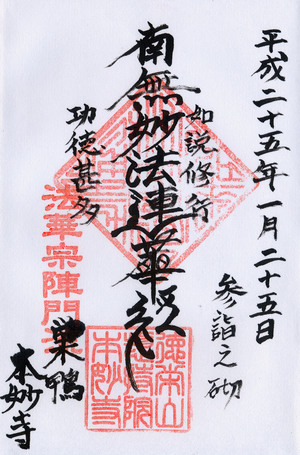 平成二十五年一月二十五日
参詣之砌
如説修行
南無妙法蓮華経
功徳甚多
法華宗陣門流
巣鴨
本妙寺
徳栄山
惣持院
本妙寺